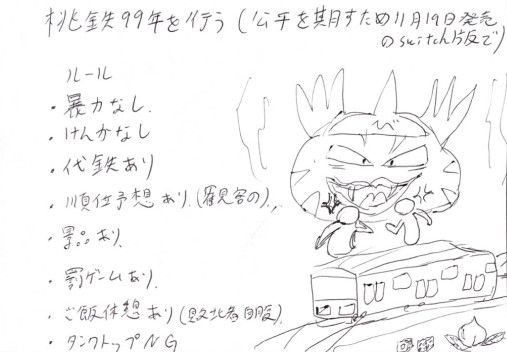 桃鉄99年を行う(公平を期すため11月19日発売
のswitch版で)
ルール
・暴力なし.
・けんかなし
・代鉄あり
・順位予想あり.(観客の).
・景品あり.
・罰ゲームあり.
・ご飯休憩あり(敗北者自腹).
・タンクトップNG
び